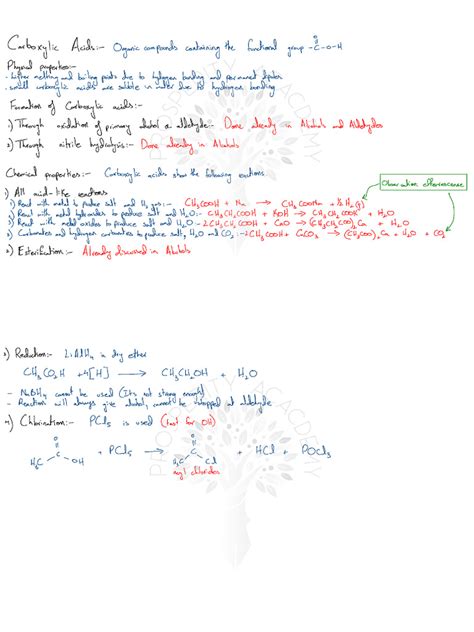 Carboxylic Acids:- Organic compounds containing the functional group -C-O-H
O
Physical properties:-
- Higher melting and boiling points due to hydrogen bonding and permanent dipoles
- small carboxylic acids are soluble in water due to hydrogen bonding
Formation of Carboxylic acids:-
1) Through oxidation of primary alcohol or aldehyde:- Done already in Alcohols and Aldehydes
2) Through nitrile hydrolysis:- Done already in Alcohols
Chemical properties:- Carboxylic acids show the following reactions
Observation effervescence
1) All acid-like reactions
1) React with metal to produce salt and H2 gas:- CH3COOH + Na → CH3COONa + ½H2(g)
2) React with metal hydroxides to produce salt and H2O:- CH3CH2COOH + KOH → CH3CH2COOK + H2O
3) React with metal oxides to produce salt and H2O:- 2CH3CH2COOH + CaO → (CH3CH2COO)2Ca + H2O
4) Carbonates and hydrogen carbonates to produce salt, H2O and CO2:- 2CH3COOH + CaCO3 → (CH3COO)2Ca + H2O + CO2
2) Esterification:- Already discussed in Alcohols
3) Reduction:- LiAlH4 in dry ether
CH3CO2H + 4[H] → CH3CH2OH + H2O
- NaBH4 cannot be used (Its not strong enough)
- Reaction will always give alcohol, cannot be stopped at aldehyde
4) Chlorination:- PCl5 is used (test for OH)
O
H3C C OH + PCl5 → H3C C Cl + HCl + POCl3
O
acyl chlorides
PROSPERITY ACADEMY
PROSPERITY ACADEMY